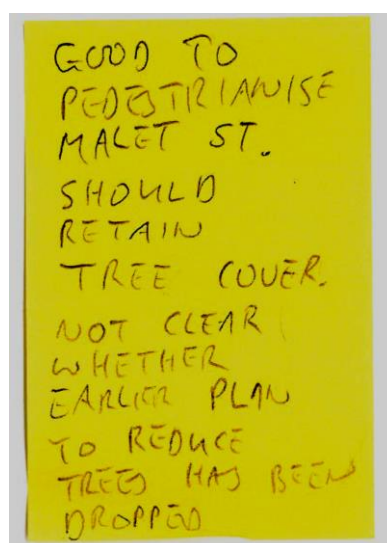 GOOD TO
PEDESTRIANISE
MALET ST.
SHOULD
RETAIN
TREE COVER.
NOT CLEAR
WHETHER
EARLIER PLAN
TO REDUCE
TREES HAS BEEN
DROPPED